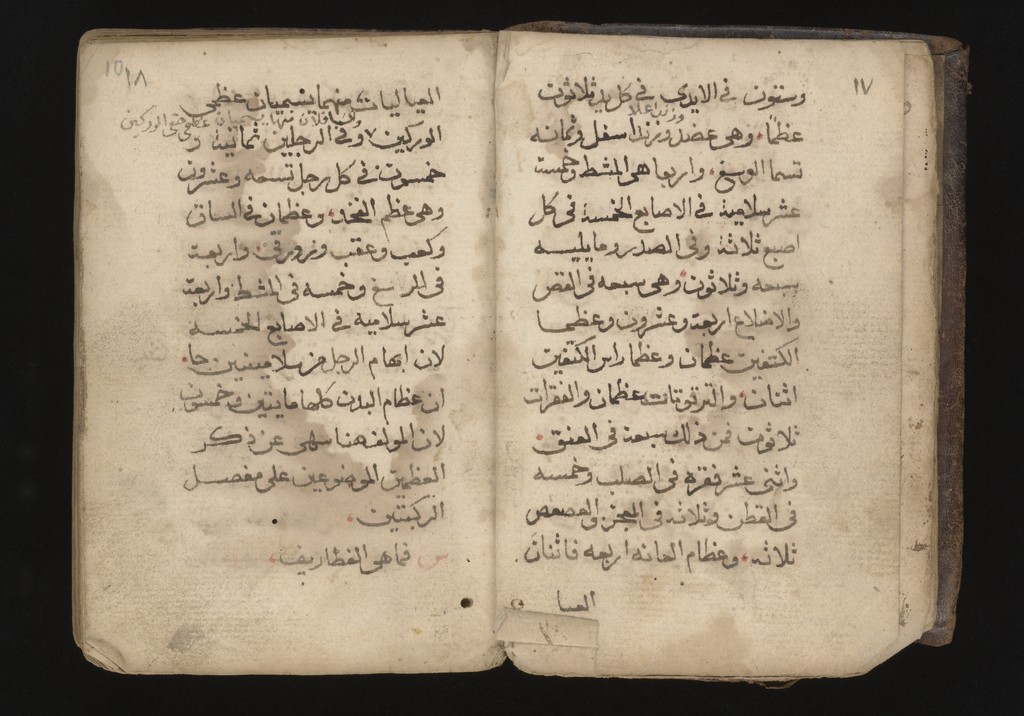 ١٧
وستون في الايدي في كل يد ثلاثون
وزند اعلا
عظما، وهي عضد وزند اسفل وثمانه
تسما الوسغ، واربعا هي المشط وخمسة
عشر سلامية في الاصابع الخمسة في كل
اصبع ثلاثة وفي الصدر وما يليه
سبعه وثلاثون وهي سبعه في القص
والاضلاع اربعة وعشرون وعظما
الكتفين عظمان وعظما راس الكتفين
اثنان، والترقوتان عظمان والفقرات
ثلاثون فمن ذلك سبعة في العنق
واثنى عشر فقره في الصلب وخمسه
في القطن وثلاثه في العجز والعصعص
ثلاثه، وعظام العانه اربعه فاثنان
العيا
10
١٨
العياليات منهما يسميان عظمي
يسميان عظمي حق الوركين
الوركين وفي الرجلين ثمانية و
خمسون في كل رجل تسعه وعشرون
وهي عظم الفخد، وعظمان في الساق
وكعب وعقب وزورقي واربعة
في الرسغ وخمسه في المشط واربعة
عشر سلامية في الاصابع الخمسه
لان ابهام الرجل من سلاميتين جا
ان عظام البدن كلها مايتين وخمسون
لان المولف هنا سهى عن ذكر
العظمين الموضوعين على مفصل
الركبتين
س فما هي الغظاريف